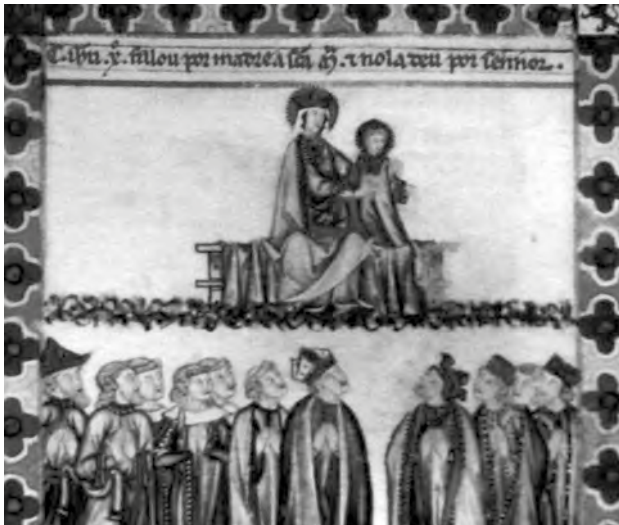 C. ihu. x̊. fillou por madre a sc̄a m̊. ⁊ nola deu por sennor.